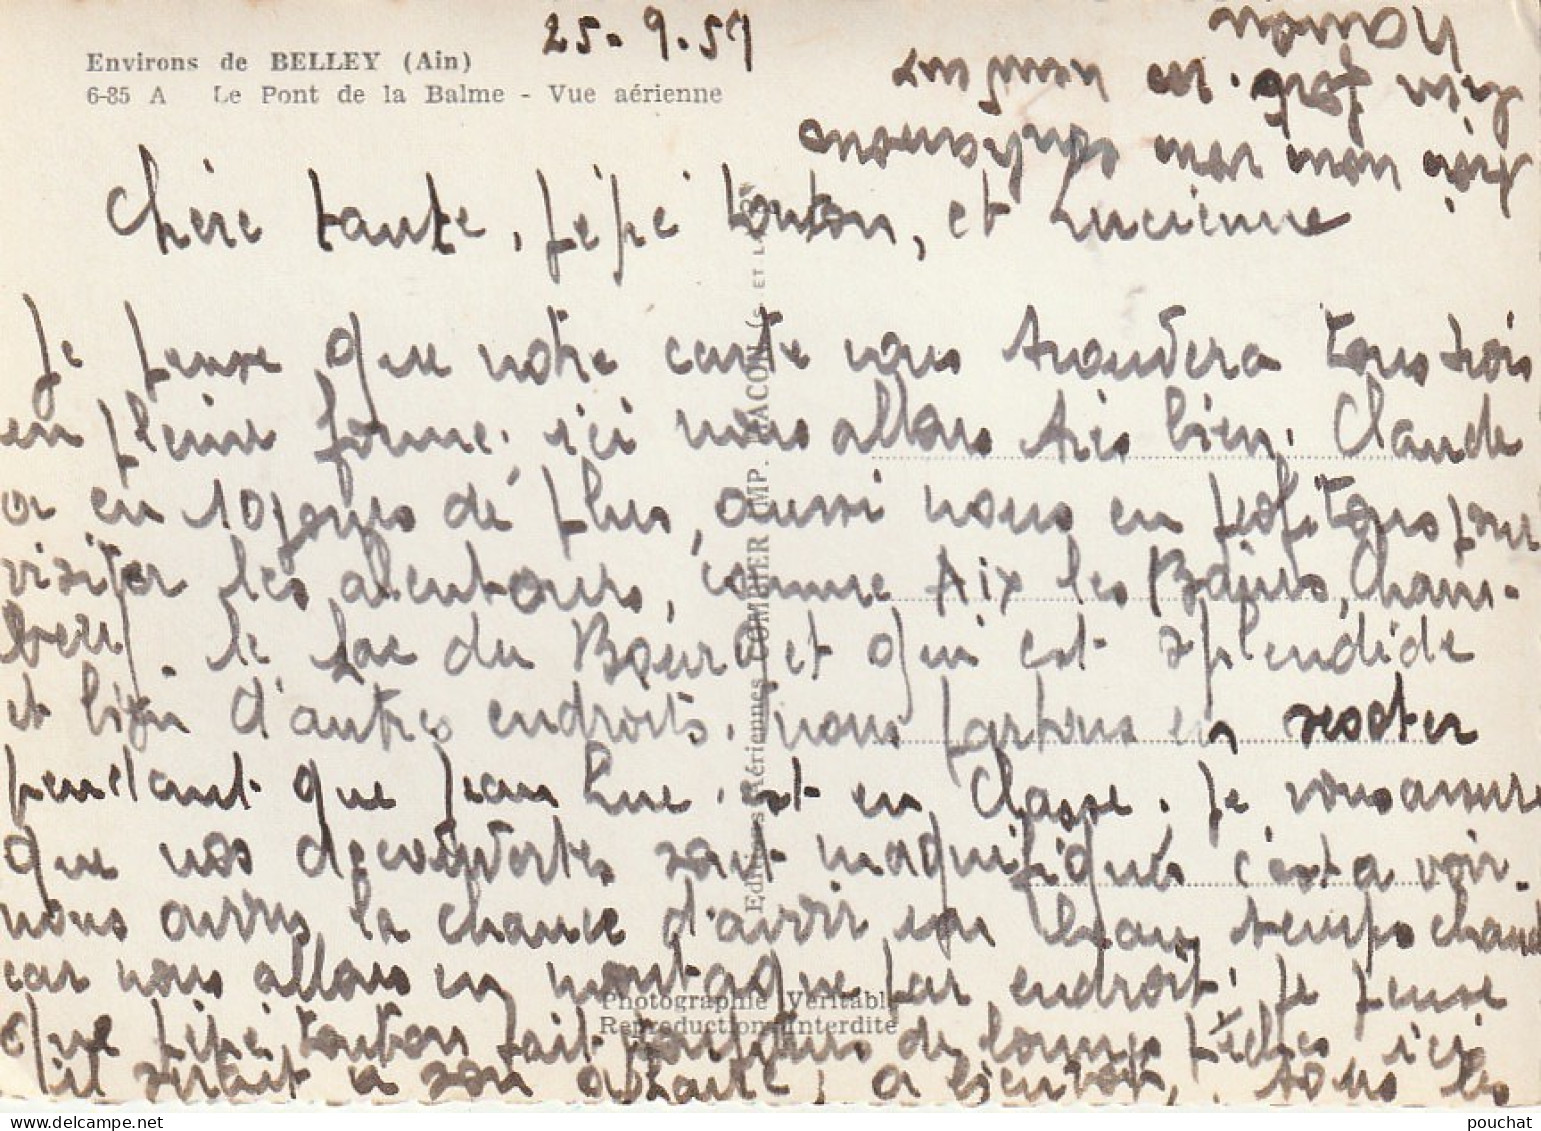 Environs de BELLEY (Ain)
6-85 A Le Pont de la Balme - Vue aérienne
25-9-59
Chère tante, pépé tonton, et Lucienne
Je pense que notre carte vous trouvera tous trois
en pleine forme. ici nous allons très bien. Claude
a eu 10 jours de plus, aussi nous en profitons pour
visiter les alentours, comme Aix les Bains, Cham-
bery. le Lac du Bourget qui est splendide
et bien d'autres endroits. nous partons en scooter
pendant que Jean Luc est en classe. Je vous assure
que nos decouvertes sont magnifiques c'est a voir.
nous avons la chance d'avoir un beau temps chaud
car nous allons en montagne par endroit. Je pense
que pépé tonton fait toujours de bonnes pêches ici
il serait a son affaire, a bientot, tous les
trois nous vous embrassons
bien fort.
Editions Aériennes COMBIER IMP. MACON
Photographie Véritable
Reproduction Interdite
pouchat
www.delcampe.net